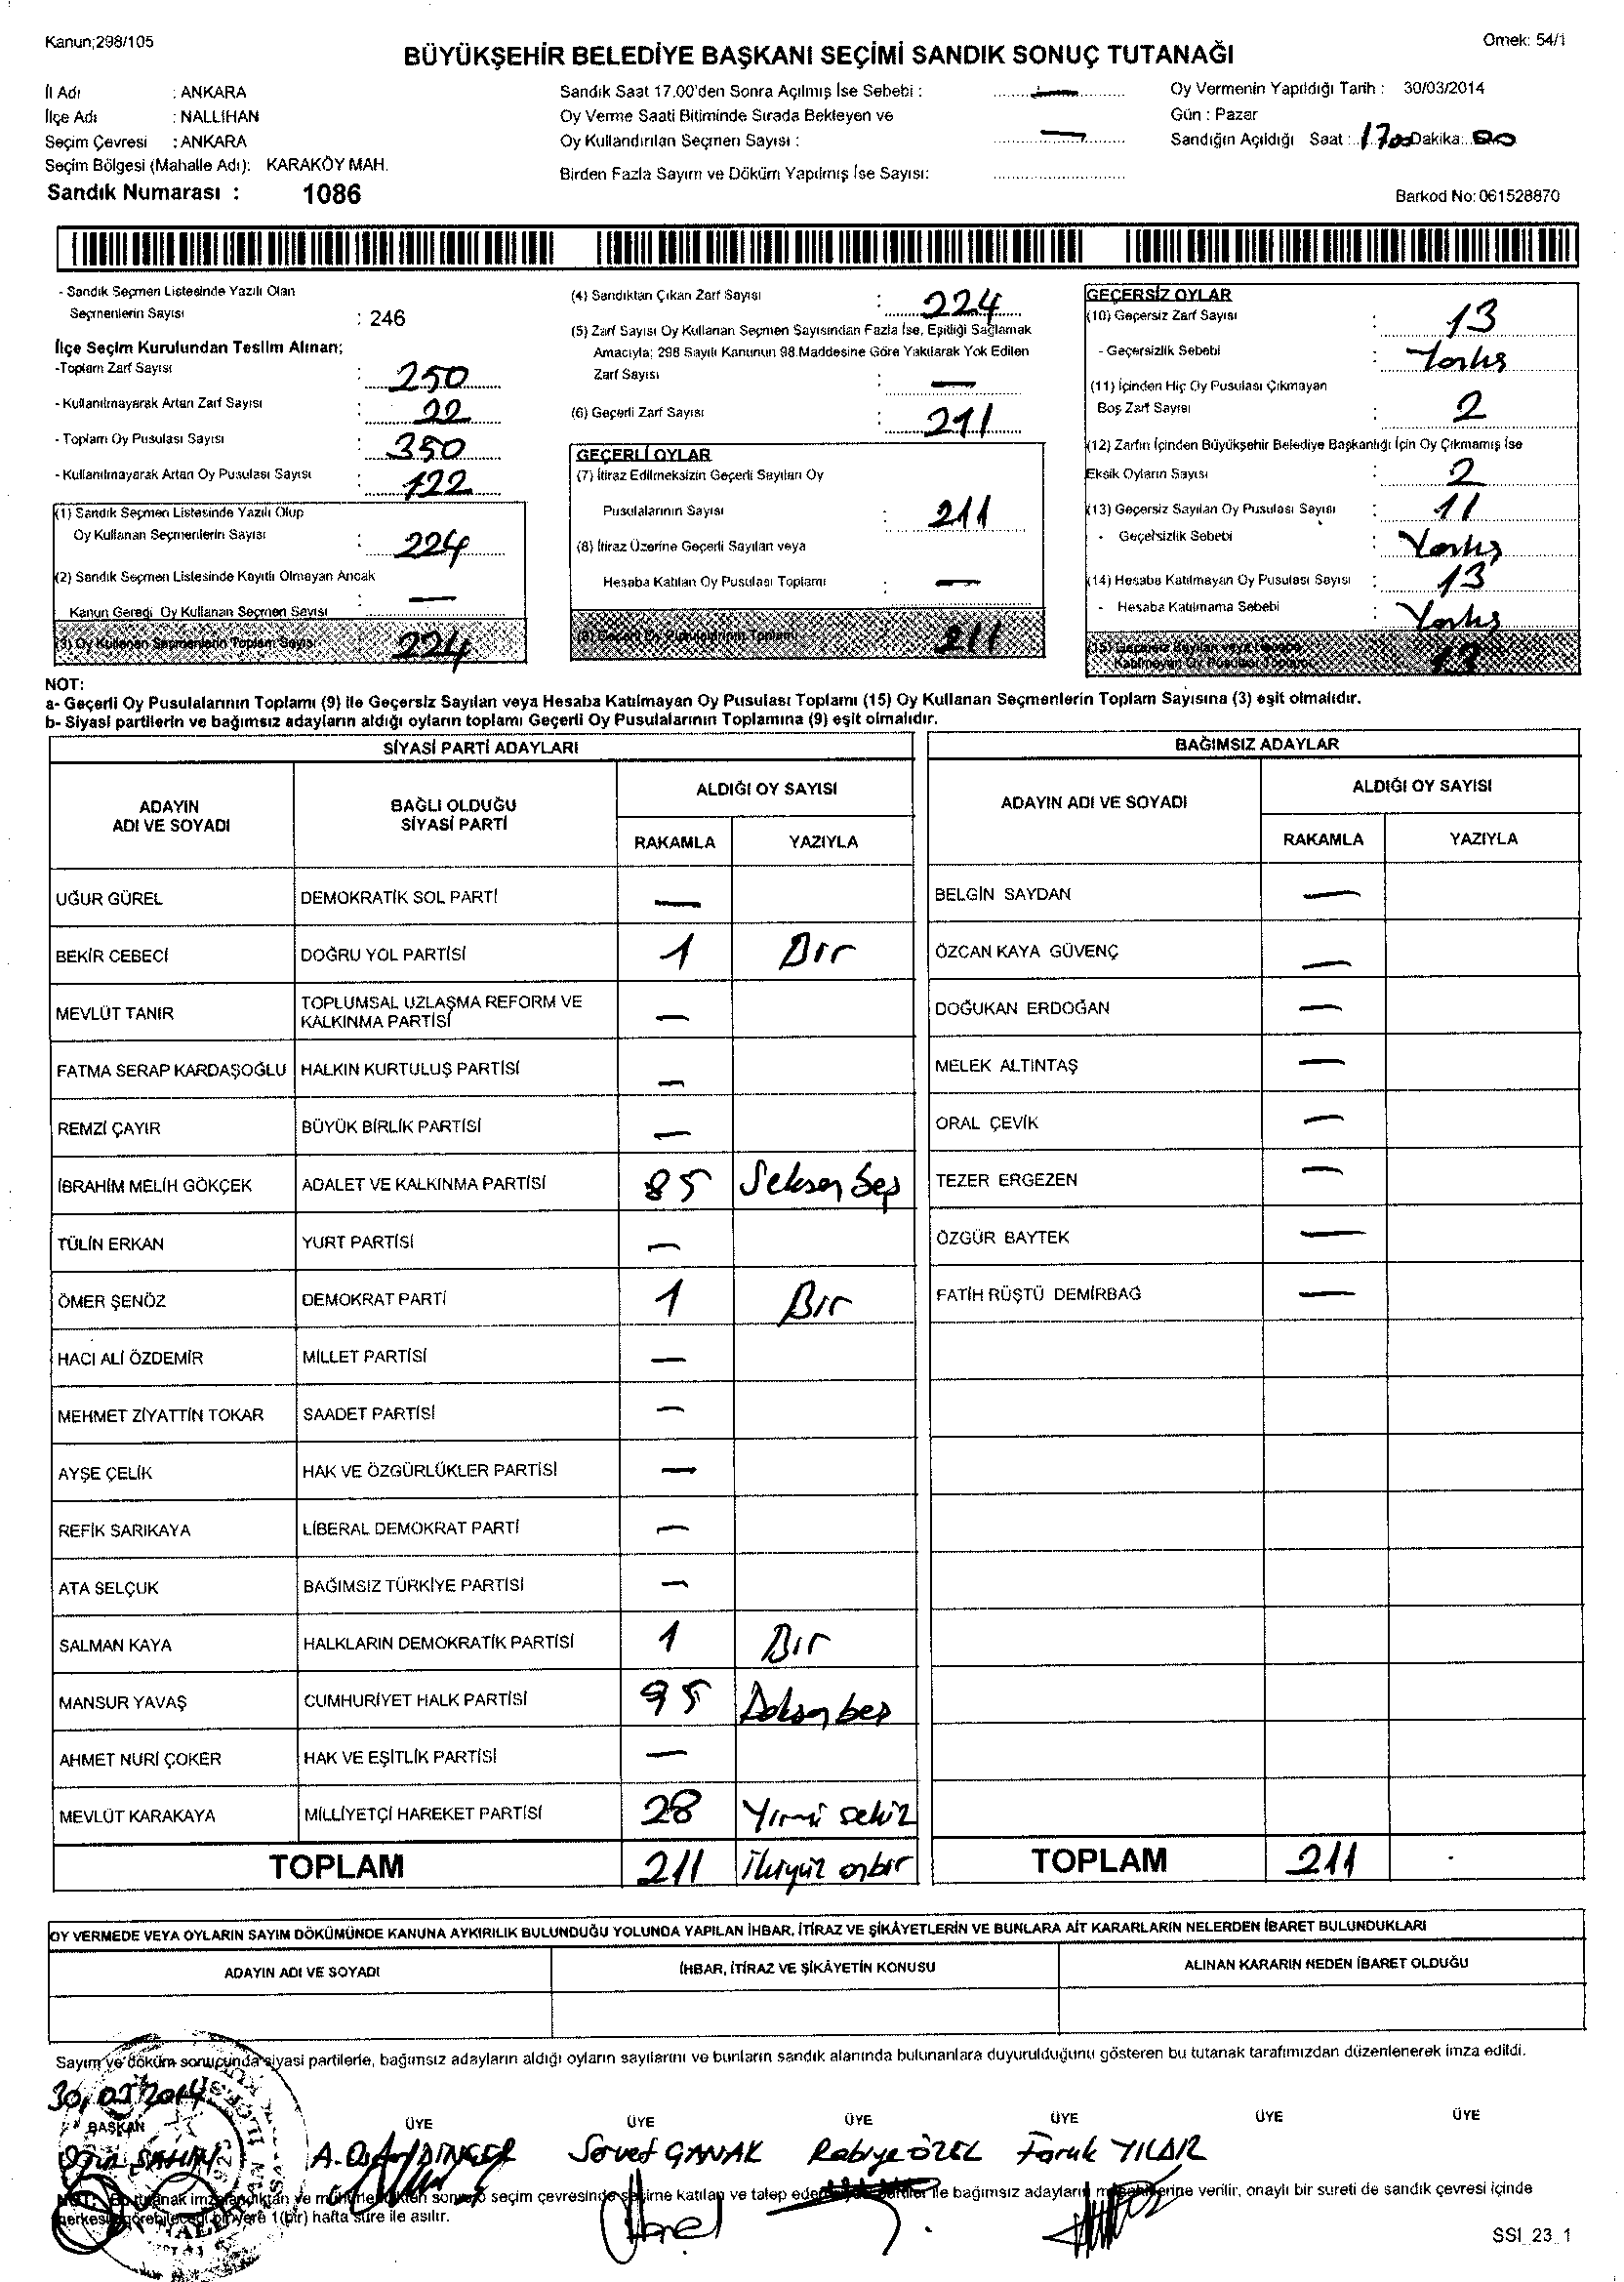 Kanun;298/105
Örnek: 54/1
BÜYÜKŞEHİR BELEDİYE BAŞKANI SEÇİMİ SANDIK SONUÇ TUTANAĞI
İl Adı : ANKARA
İlçe Adı : NALLIHAN
Seçim Çevresi : ANKARA
Seçim Bölgesi (Mahalle Adı): KARAKÖY MAH.
Sandık Numarası : 1086
Sandık Saat 17.00'den Sonra Açılmış İse Sebebi : —
Oy Verme Saati Bitiminde Sırada Bekleyen ve
Oy Kullandırılan Seçmen Sayısı : —
Birden Fazla Sayım ve Döküm Yapılmış İse Sayısı:
Oy Vermenin Yapıldığı Tarih : 30/03/2014
Gün : Pazar
Sandığın Açıldığı Saat : 1700 Dakika: 00
Barkod No: 061528870
- Sandık Seçmen Listesinde Yazılı Olan
Seçmenlerin Sayısı : 246
İlçe Seçim Kurulundan Teslim Alınan;
-Toplam Zarf Sayısı : 250
- Kullanılmayarak Artan Zarf Sayısı : 22
- Toplam Oy Pusulası Sayısı : 350
- Kullanılmayarak Artan Oy Pusulası Sayısı : 122
(1) Sandık Seçmen Listesinde Yazılı Olup
Oy Kullanan Seçmenlerin Sayısı : 224
(2) Sandık Seçmen Listesinde Kayıtlı Olmayan Ancak
Kanun Gereği Oy Kullanan Seçmen Sayısı : —
(3) Oy Kullanan Seçmenlerin Toplam Sayısı 224
(4) Sandıktan Çıkan Zarf Sayısı : 224
(5) Zarf Sayısı Oy Kullanan Seçmen Sayısından Fazla İse, Eşitliği Sağlamak
Amacıyla; 298 Sayılı Kanunun 98.Maddesine Göre Yakılarak Yok Edilen
Zarf Sayısı : —
(6) Geçerli Zarf Sayısı : 211
GEÇERLİ OYLAR
(7) İtiraz Edilmeksizin Geçerli Sayılan Oy
Pusulalarının Sayısı : 211
(8) İtiraz Üzerine Geçerli Sayılan veya
Hesaba Katılan Oy Pusulası Toplamı : —
Geçerli Oy Pusulalarının Toplamı 211
GEÇERSİZ OYLAR
(10) Geçersiz Zarf Sayısı : 13
- Geçersizlik Sebebi : Yanlış
(11) İçinden Hiç Oy Pusulası Çıkmayan
Boş Zarf Sayısı : 2
(12) Zarfın İçinden Büyükşehir Belediye Başkanlığı İçin Oy Çıkmamış İse
Eksik Oyların Sayısı : 2
(13) Geçersiz Sayılan Oy Pusulası Sayısı : 11
- Geçersizlik Sebebi : Yanlış
(14) Hesaba Katılmayan Oy Pusulası Sayısı : 13
- Hesaba Katılmama Sebebi : Yanlış
(15) Geçersiz Sayılan veya Hesaba
Katılmayan Oy Pusulası Toplamı 13
NOT:
a- Geçerli Oy Pusulalarının Toplamı (9) ile Geçersiz Sayılan veya Hesaba Katılmayan Oy Pusulası Toplamı (15) Oy Kullanan Seçmenlerin Toplam Sayısına (3) eşit olmalıdır.
b- Siyasi partilerin ve bağımsız adayların aldığı oyların toplamı Geçerli Oy Pusulalarının Toplamına (9) eşit olmalıdır.
SİYASİ PARTİ ADAYLARI
ADAYIN ADI VE SOYADI BAĞLI OLDUĞU SİYASİ PARTİ ALDIĞI OY SAYISI
RAKAMLA YAZIYLA
UĞUR GÜREL DEMOKRATİK SOL PARTİ —
BEKİR CEBECİ DOĞRU YOL PARTİSİ 1 Bir
MEVLÜT TANIR TOPLUMSAL UZLAŞMA REFORM VE KALKINMA PARTİSİ —
FATMA SERAP KARDAŞOĞLU HALKIN KURTULUŞ PARTİSİ —
REMZİ ÇAYIR BÜYÜK BİRLİK PARTİSİ —
İBRAHİM MELİH GÖKÇEK ADALET VE KALKINMA PARTİSİ 85 Seksen beş
TÜLİN ERKAN YURT PARTİSİ —
ÖMER ŞENÖZ DEMOKRAT PARTİ 1 Bir
HACI ALİ ÖZDEMİR MİLLET PARTİSİ —
MEHMET ZİYATTİN TOKAR SAADET PARTİSİ —
AYŞE ÇELİK HAK VE ÖZGÜRLÜKLER PARTİSİ —
REFİK SARIKAYA LİBERAL DEMOKRAT PARTİ —
ATA SELÇUK BAĞIMSIZ TÜRKİYE PARTİSİ —
SALMAN KAYA HALKLARIN DEMOKRATİK PARTİSİ 1 Bir
MANSUR YAVAŞ CUMHURİYET HALK PARTİSİ 95 Doksan beş
AHMET NURİ ÇOKER HAK VE EŞİTLİK PARTİSİ —
MEVLÜT KARAKAYA MİLLİYETÇİ HAREKET PARTİSİ 28 Yirmi sekiz
TOPLAM 211 İkiyüz onbir
BAĞIMSIZ ADAYLAR
ADAYIN ADI VE SOYADI ALDIĞI OY SAYISI
RAKAMLA YAZIYLA
BELGİN SAYDAN —
ÖZCAN KAYA GÜVENÇ —
DOĞUKAN ERDOĞAN —
MELEK ALTINTAŞ —
ORAL ÇEVİK —
TEZER ERGEZEN —
ÖZGÜR BAYTEK —
FATİH RÜŞTÜ DEMİRBAĞ —
TOPLAM 211
OY VERMEDE VEYA OYLARIN SAYIM DÖKÜMÜNDE KANUNA AYKIRILIK BULUNDUĞU YOLUNDA YAPILAN İHBAR, İTİRAZ VE ŞİKÂYETLERİN VE BUNLARA AİT KARARLARIN NELERDEN İBARET BULUNDUKLARI
ADAYIN ADI VE SOYADI İHBAR, İTİRAZ VE ŞİKÂYETİN KONUSU ALINAN KARARIN NEDEN İBARET OLDUĞU
Sayım ve döküm sonucunda siyasi partilerle, bağımsız adayların aldığı oyların sayılarını ve bunların sandık alanında bulunanlara duyurulduğunu gösteren bu tutanak tarafımızdan düzenlenerek imza edildi.
30,03/2014
BAŞKAN ÜYE ÜYE ÜYE ÜYE ÜYE ÜYE
ŞAHİN Servet ÇANAK Rabiye ÖZEL Faruk YILAR
NOT: Bu tutanak imzalandıktan ve mühürlendikten sonra seçim çevresinde seçime katılan ve talep eden siyasi partiler ile bağımsız adayların müşahitlerine verilir, onaylı bir sureti de sandık çevresi içinde
herkesin görebileceği bir yere 1(bir) hafta süre ile asılır.
SSI_23_1